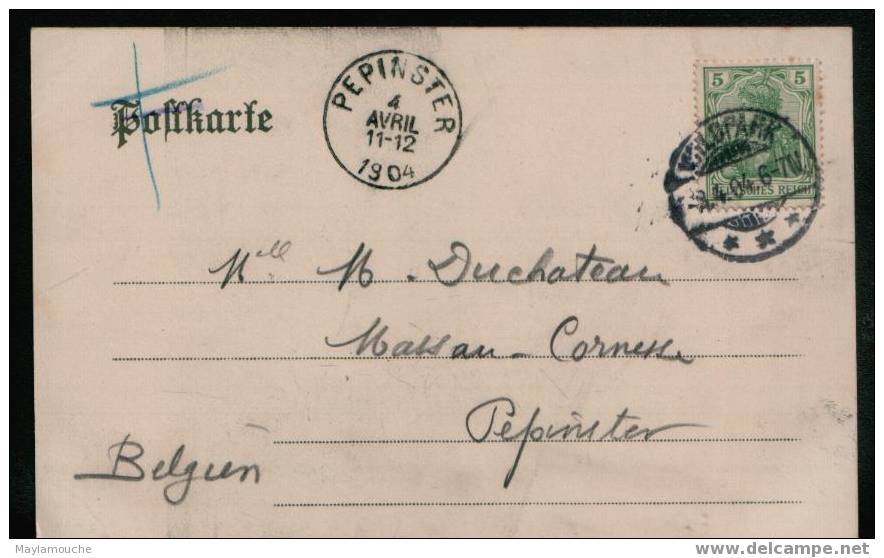 Postkarte
PEPINSTER
4
AVRIL
11-12
1904
5 5
WILDPARK
4.04.6-7N.
DEUTSCHES REICH
Mlle M. Duchateau
Massau-Cornesse
Pepinster
Belgien
Maylamouche
www.delcampe.net